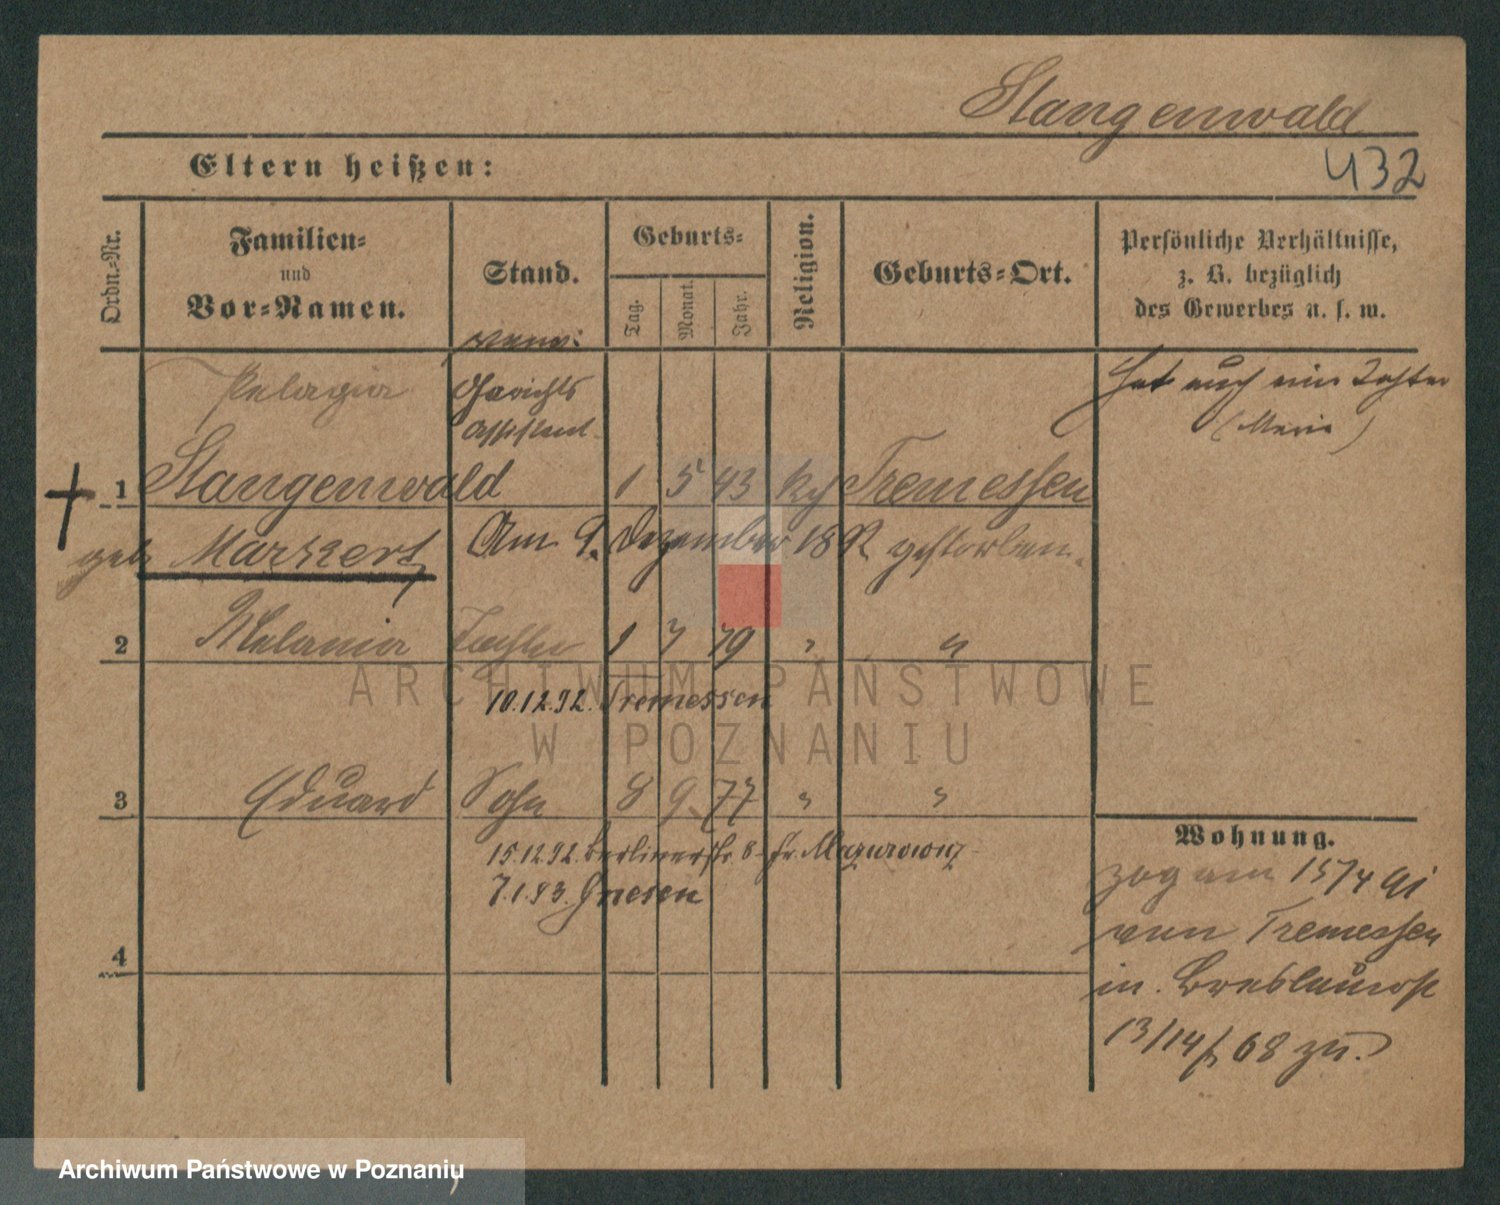 Stangenwald
432
Eltern heißen:
Ordn.-Nr.
Familien-
und
Vor-Namen.
Stand.
Geburts-
Tag.
Monat.
Jahr.
Religion.
Geburts-Ort.
Persönliche Verhältnisse,
z. B. bezüglich
des Gewerbes u. s. w.
Pelagia
Gerichts
Assistent
Hat auch eine Tochter
(Marie)
1 Stangenwald 1 5 43 kth Tremessen
geb Markert
Am 9. Dezember 1892 gestorben.
2 Melania Tochter 1 7 79 " "
10.12.92. Tremessen
3 Eduard Sohn 8 9. 77 " "
15.12.92. Berlinerstr. 8
7.1.93. Gnesen
4
Wohnung.
zog am 15/4 91
von Tremessen
in Breslauerst
13/14 68 zu.
ARCHIWUM PAŃSTWOWE
W POZNANIU
Archiwum Państwowe w Poznaniu